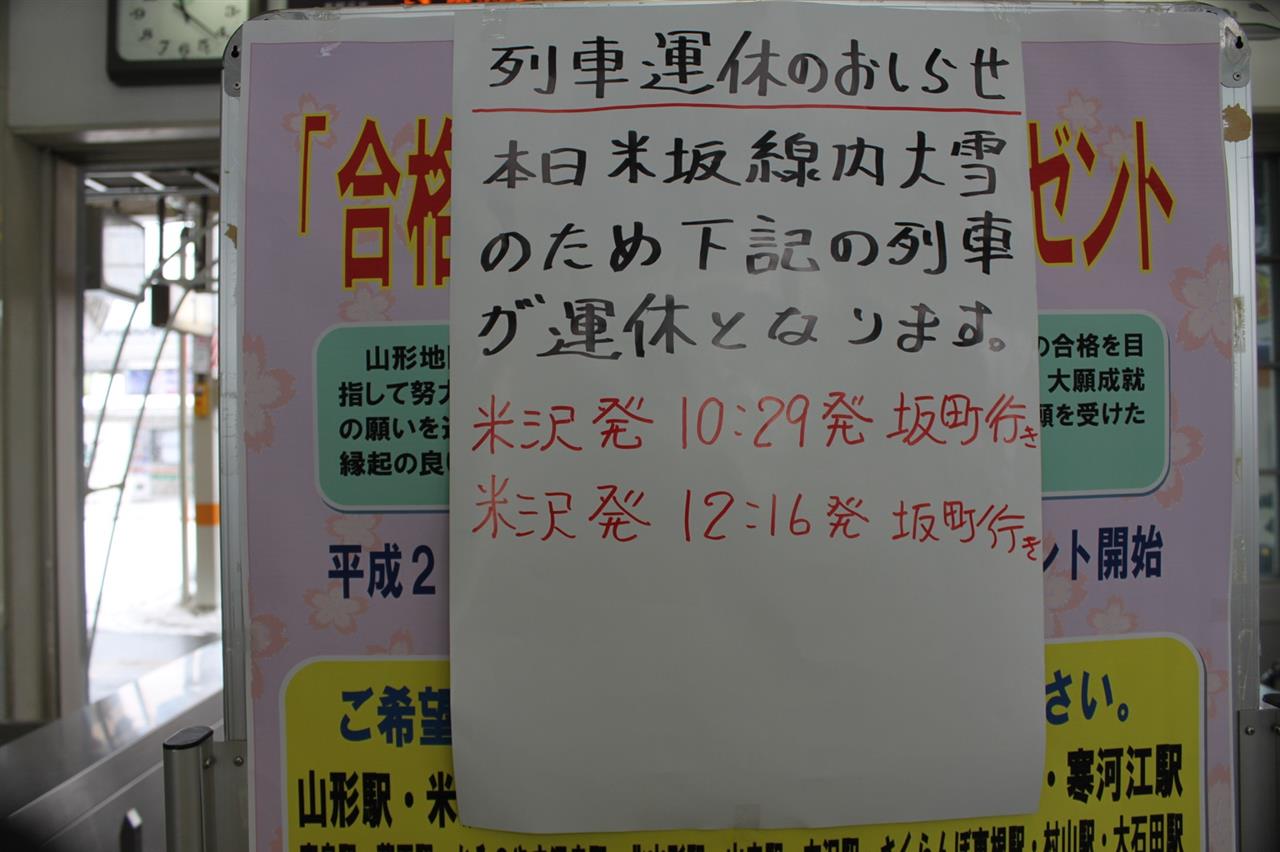 列車運休のおしらせ
本日米坂線内大雪
のため下記の列車
が運休となります。
米沢発 10:29発 坂町行き
米沢発 12:16発 坂町行き
「合格 ゼント
山形地
指して努力
の願いを
縁起の良い
の合格を目
大願成就
願を受けた
平成2 ント開始
ご希望 さい。
山形駅・米 ・寒河江駅
さくらんぼ東根駅・村山駅・大石田駅